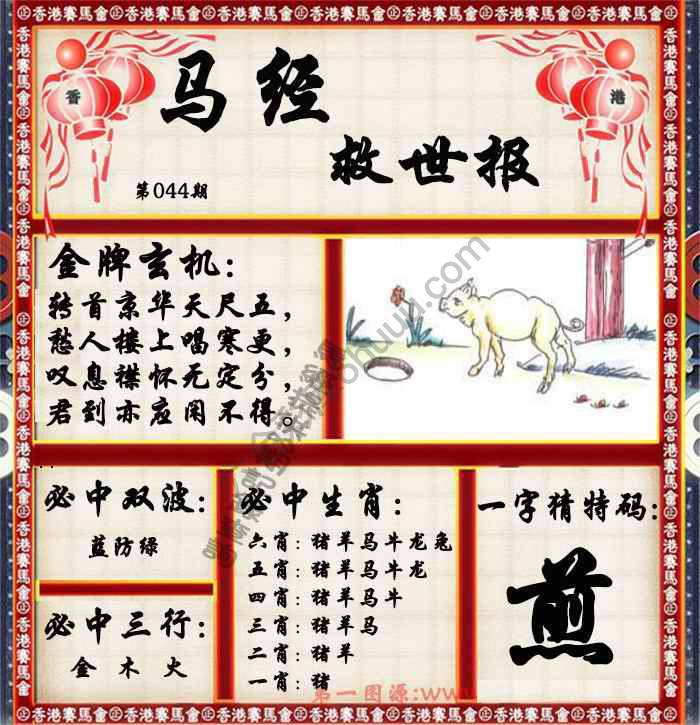 香港賽馬會
马经
救世报
香
港
第044期
金牌玄机：
转首京华天尺五，
愁人楼上唱寒更，
叹息襟怀无定分，
君到亦应闲不得。
必中双波：
蓝防绿
必中三行：
金 木 火
必中生肖：
六肖：猪羊马牛龙兔
五肖：猪羊马牛龙
四肖：猪羊马牛
三肖：猪羊马
二肖：猪羊
一肖：猪
一字猜特码：
煎
第一图源:www